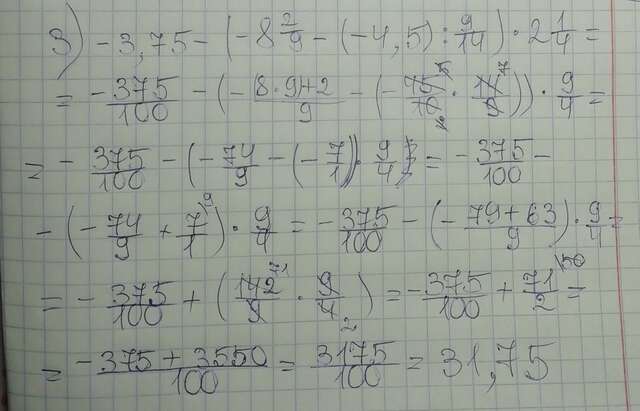 3) -3,75-(-8 2/9-(-4,5):9/14)·2 1/4=
=-375/100-(-(8·9)+2/9-(-45/10·14/9))·9/4=
=-375/100-(-74/9-(-7/1))·9/4=-375/100-
-(-74/9+7/1)·9/4=-375/100-(-79+63/9)·9/4=
=-375/100+(142/9·9/4)=-375/100+71/2=
=-375+3550/100=3175/100=31,75